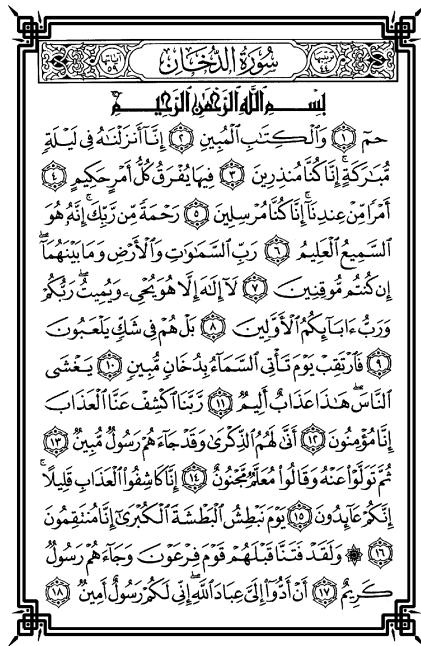 ترتيبها ٤٤ سُورَةُ الدُّخَانِ آياتها ٥٩
بِسْمِ اللَّهِ الرَّحْمَٰنِ الرَّحِيمِ
حمٓ ﴿١﴾ وَٱلْكِتَٰبِ ٱلْمُبِينِ ﴿٢﴾ إِنَّآ أَنزَلْنَٰهُ فِى لَيْلَةٍ
مُّبَٰرَكَةٍ ۚ إِنَّا كُنَّا مُنذِرِينَ ﴿٣﴾ فِيهَا يُفْرَقُ كُلُّ أَمْرٍ حَكِيمٍ ﴿٤﴾
أَمْرًا مِّنْ عِندِنَآ ۚ إِنَّا كُنَّا مُرْسِلِينَ ﴿٥﴾ رَحْمَةً مِّن رَّبِّكَ ۚ إِنَّهُۥ هُوَ
ٱلسَّمِيعُ ٱلْعَلِيمُ ﴿٦﴾ رَبِّ ٱلسَّمَٰوَٰتِ وَٱلْأَرْضِ وَمَا بَيْنَهُمَآ ۖ
إِن كُنتُم مُّوقِنِينَ ﴿٧﴾ لَآ إِلَٰهَ إِلَّا هُوَ يُحْىِۦ وَيُمِيتُ ۖ رَبُّكُمْ
وَرَبُّ ءَابَآئِكُمُ ٱلْأَوَّلِينَ ﴿٨﴾ بَلْ هُمْ فِى شَكٍّ يَلْعَبُونَ
﴿٩﴾ فَٱرْتَقِبْ يَوْمَ تَأْتِى ٱلسَّمَآءُ بِدُخَانٍ مُّبِينٍ ﴿١٠﴾ يَغْشَى
ٱلنَّاسَ ۖ هَٰذَا عَذَابٌ أَلِيمٌ ﴿١١﴾ رَّبَّنَا ٱكْشِفْ عَنَّا ٱلْعَذَابَ
إِنَّا مُؤْمِنُونَ ﴿١٢﴾ أَنَّىٰ لَهُمُ ٱلذِّكْرَىٰ وَقَدْ جَآءَهُمْ رَسُولٌ مُّبِينٌ ﴿١٣﴾
ثُمَّ تَوَلَّوْا۟ عَنْهُ وَقَالُوا۟ مُعَلَّمٌ مَّجْنُونٌ ﴿١٤﴾ إِنَّا كَاشِفُوا۟ ٱلْعَذَابِ قَلِيلًا ۚ
إِنَّكُمْ عَآئِدُونَ ﴿١٥﴾ يَوْمَ نَبْطِشُ ٱلْبَطْشَةَ ٱلْكُبْرَىٰٓ إِنَّا مُنتَقِمُونَ
﴿١٦﴾ ۞ وَلَقَدْ فَتَنَّا قَبْلَهُمْ قَوْمَ فِرْعَوْنَ وَجَآءَهُمْ رَسُولٌ
كَرِيمٌ ﴿١٧﴾ أَنْ أَدُّوٓا۟ إِلَىَّ عِبَادَ ٱللَّهِ ۖ إِنِّى لَكُمْ رَسُولٌ أَمِينٌ ﴿١٨﴾